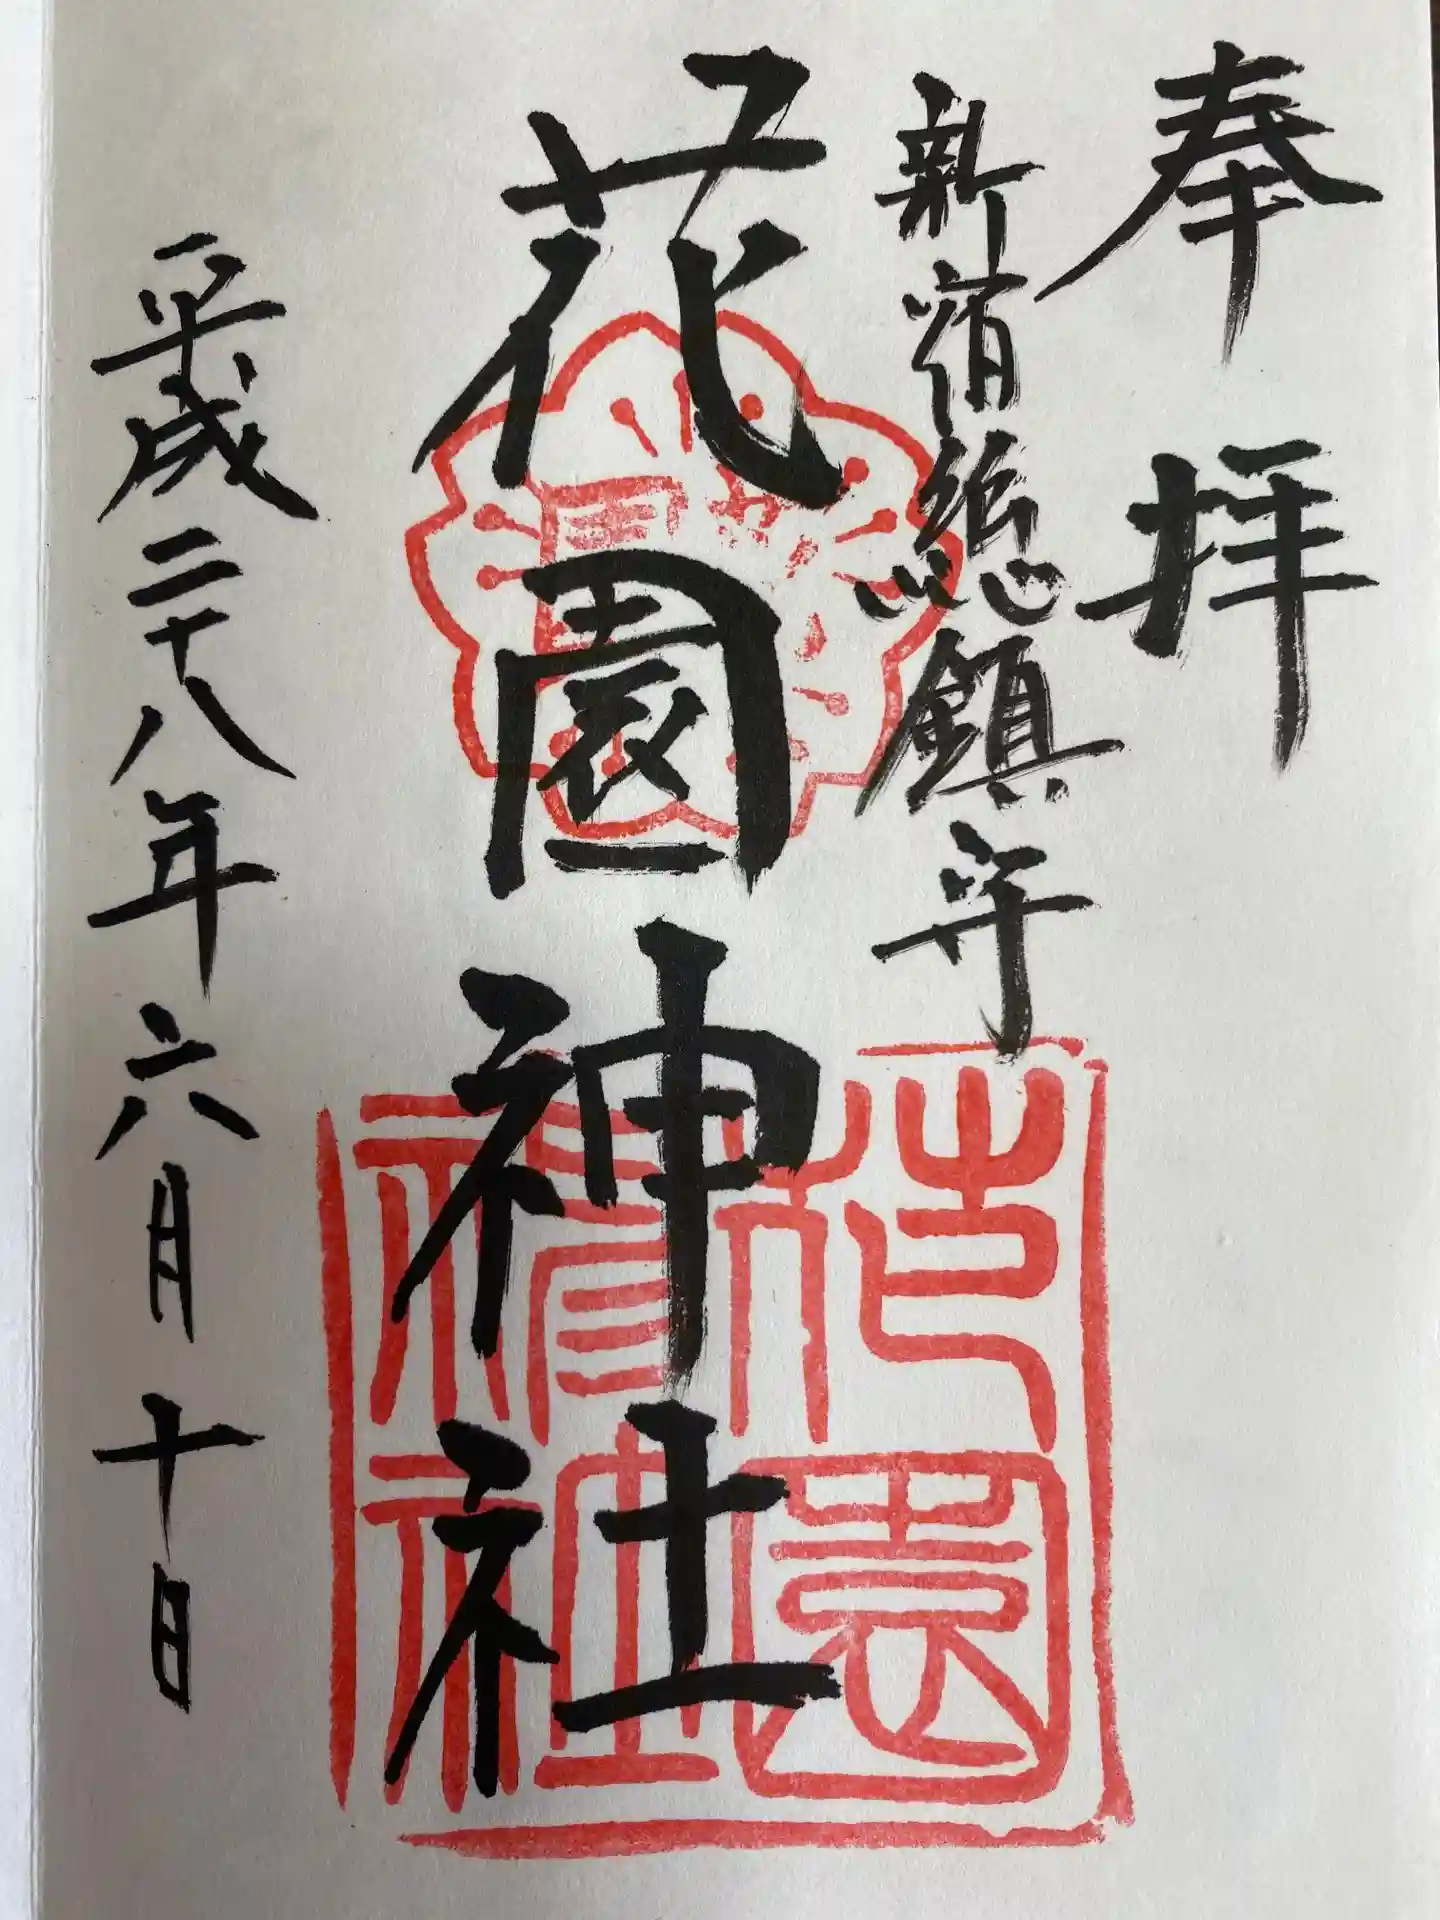 奉拝
新宿總鎮守
花園神社
平成二十八年六月十日
花園
神社